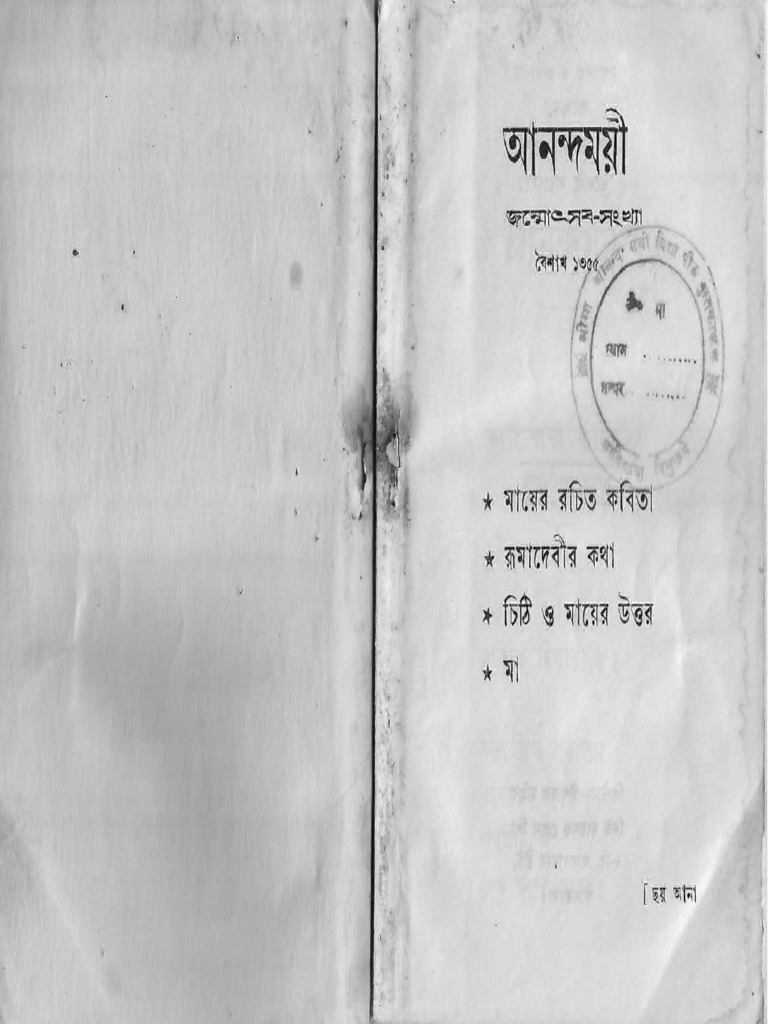 আনন্দময়ী
জন্মোৎসব-সংখ্যা
বৈশাখ ১৩৫৫
মা
স্থান
নম্বর
★ মায়ের রচিত কবিতা
★ রূমাদেবীর কথা
★ চিঠি ও মায়ের উত্তর
★ মা
[ ছয় আনা